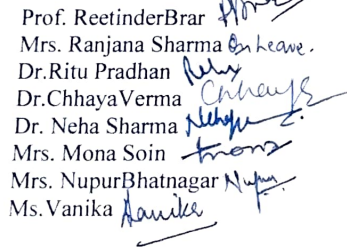 Prof. ReetinderBrar
Mrs. Ranjana Sharma On Leave.
Dr.Ritu Pradhan Ritu
Dr.ChhayaVerma Chhaya
Dr. Neha Sharma Neha
Mrs. Mona Soin Mona
Mrs. NupurBhatnagar Nupur
Ms.Vanika Vanika